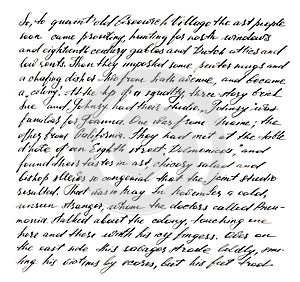 So, to quaint old Greenwich Village the art people
soon came prowling, hunting for north windows
and eighteenth century gables and Dutch attics and
low rents. Then they imported some pewter mugs and
a chafing dish or two from Sixth Avenue, and became
a colony. At the top of a squatty three story brick
Sue and Johnsy had their studio. Johnsy was
familiar for Joanna. One was from Maine, the
other from California. They had met at the table
d'hote of an Eighth street, Delmonico's, and
found their tastes in art, chicory salad and
bishop sleeves so congenial that the joint studio
resulted. That was in May. In November a cold,
unseen stranger, whom the doctors called Pneu-
monia stalked about the colony, touching one
here and there with his icy fingers. Over on
the east side this ravager strode boldly, smi-
ting his victims by scores, but his feet trod